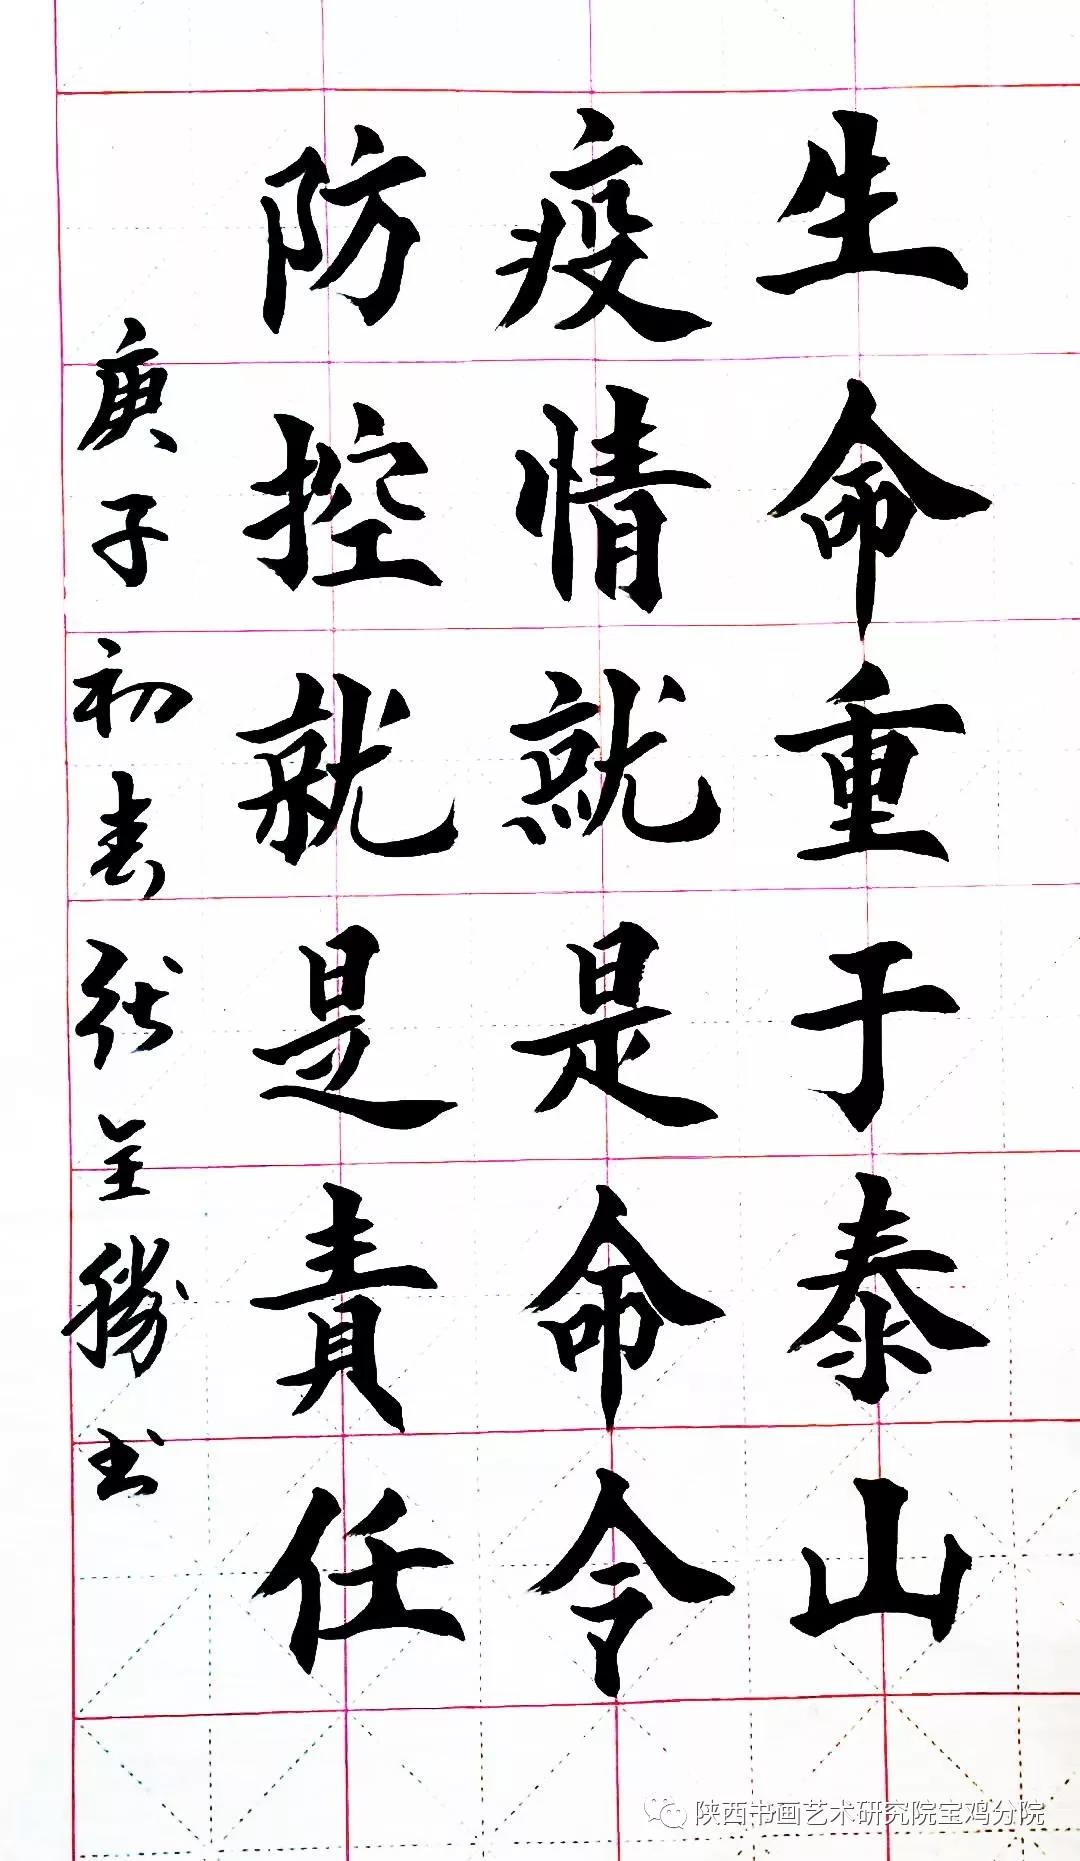 生命重于泰山
疫情就是命令
防控就是責任
庚子初春张全勝书
陕西书画艺术研究院宝鸡分院